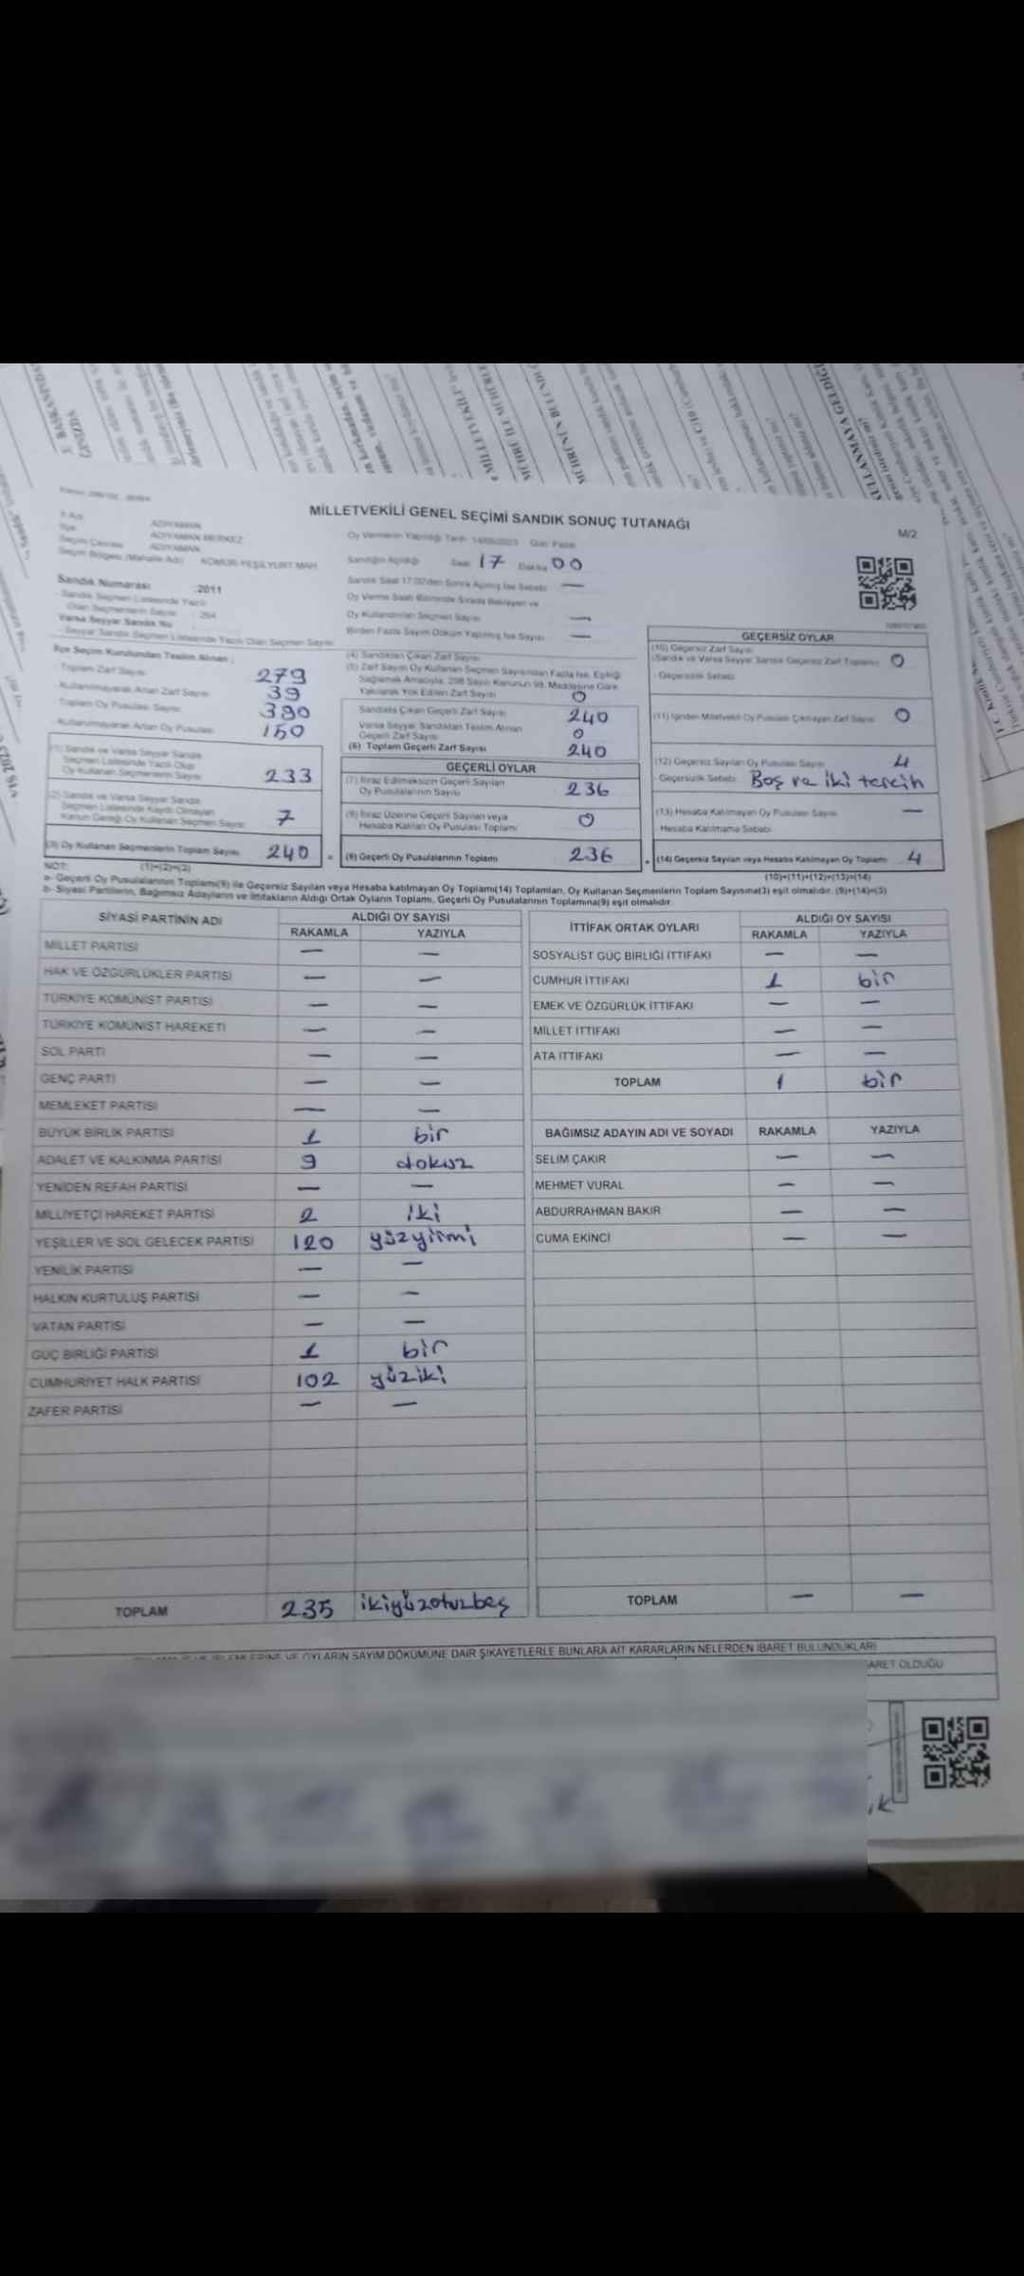 MİLLETVEKİLİ GENEL SEÇİMİ SANDIK SONUÇ TUTANAĞI
M/2
ADIYAMAN
ADIYAMAN MERKEZ
ADIYAMAN
Sandık Numarası :2011
Saat 17 Dakika 00
Sandık Saat 17:00'den Sonra Açılmış İse Sebebi —
Oy Verme Saati Bitiminde Sırada Bekleyen ve
Oy Kullandırılan Seçmen Sayısı —
Birden Fazla Sayım Döküm Yapılmış İse Sayısı —
İlçe Seçim Kurulundan Teslim Alınan :
Toplam Zarf Sayısı 279
Kullanılmayarak Artan Zarf Sayısı 39
Toplam Oy Pusulası Sayısı 390
Kullanılmayarak Artan Oy Pusulası 150
(1) Sandık ve Varsa Seyyar Sandık
Seçmen Listesinde Yazılı Olup
Oy Kullanan Seçmenlerin Sayısı 233
(2) Sandık ve Varsa Seyyar Sandık
Seçmen Listesinde Kaydı Olmayan
Kanun Gereği Oy Kullanan Seçmen Sayısı 7
(3) Oy Kullanan Seçmenlerin Toplam Sayısı 240
(1)+(2)=(3)
(4) Sandıktan Çıkan Zarf Sayısı
Yakılarak Yok Edilen Zarf Sayısı 0
Sandıkta Çıkan Geçerli Zarf Sayısı 240
Varsa Seyyar Sandıktan Teslim Alınan
Geçerli Zarf Sayısı 0
(6) Toplam Geçerli Zarf Sayısı 240
GEÇERLİ OYLAR
(7) İtiraz Edilmeksizin Geçerli Sayılan
Oy Pusulalarının Sayısı 236
(8) İtiraz Üzerine Geçerli Sayılan veya
Hesaba Katılan Oy Pusulası Toplamı 0
(9) Geçerli Oy Pusulalarının Toplamı 236
GEÇERSİZ OYLAR
(10) Geçersiz Zarf Sayısı
(Sandık ve Varsa Seyyar Sandık Geçersiz Zarf Toplamı) 0
Geçersizlik Sebebi
(11) İçinden Milletvekili Oy Pusulası Çıkmayan Zarf Sayısı 0
(12) Geçersiz Sayılan Oy Pusulası Sayısı 4
Geçersizlik Sebebi Boş ve iki tercih
(13) Hesaba Katılmayan Oy Pusulası Sayısı —
Hesaba Katılmama Sebebi
(14) Geçersiz Sayılan veya Hesaba Katılmayan Oy Toplamı 4
(10)+(11)+(12)+(13)=(14)
NOT:
a- Geçerli Oy Pusulalarının Toplamı(9) ile Geçersiz Sayılan veya Hesaba katılmayan Oy Toplamı(14) Toplamları, Oy Kullanan Seçmenlerin Toplam Sayısına(3) eşit olmalıdır. (9)+(14)=(3)
b- Siyasi Partilerin, Bağımsız Adayların ve İttifakların Aldığı Ortak Oyların Toplamı, Geçerli Oy Pusulalarının Toplamına(9) eşit olmalıdır.
SİYASİ PARTİNİN ADI ALDIĞI OY SAYISI
RAKAMLA YAZIYLA
MİLLET PARTİSİ — —
HAK VE ÖZGÜRLÜKLER PARTİSİ — —
TÜRKİYE KOMÜNİST PARTİSİ — —
TÜRKİYE KOMÜNİST HAREKETİ — —
SOL PARTİ — —
GENÇ PARTİ — —
MEMLEKET PARTİSİ — —
BÜYÜK BİRLİK PARTİSİ 1 bir
ADALET VE KALKINMA PARTİSİ 9 dokuz
YENİDEN REFAH PARTİSİ — —
MİLLİYETÇİ HAREKET PARTİSİ 2 iki
YEŞİLLER VE SOL GELECEK PARTİSİ 120 yüzyirmi
YENİLİK PARTİSİ — —
HALKIN KURTULUŞ PARTİSİ — —
VATAN PARTİSİ — —
GÜÇ BİRLİĞİ PARTİSİ 1 bir
CUMHURİYET HALK PARTİSİ 102 yüziki
ZAFER PARTİSİ — —
TOPLAM 235 ikiyüzotuzbeş
İTTİFAK ORTAK OYLARI ALDIĞI OY SAYISI
RAKAMLA YAZIYLA
SOSYALİST GÜÇ BİRLİĞİ İTTİFAKI — —
CUMHUR İTTİFAKI 1 bir
EMEK VE ÖZGÜRLÜK İTTİFAKI — —
MİLLET İTTİFAKI — —
ATA İTTİFAKI — —
TOPLAM 1 bir
BAĞIMSIZ ADAYIN ADI VE SOYADI RAKAMLA YAZIYLA
SELİM ÇAKIR — —
MEHMET VURAL — —
ABDURRAHMAN BAKIR — —
CUMA EKİNCİ — —
TOPLAM — —
OYLARIN SAYIM DÖKÜMÜNE DAİR ŞİKAYETLERLE BUNLARA AİT KARARLARIN NELERDEN İBARET BULUNDUKLARI